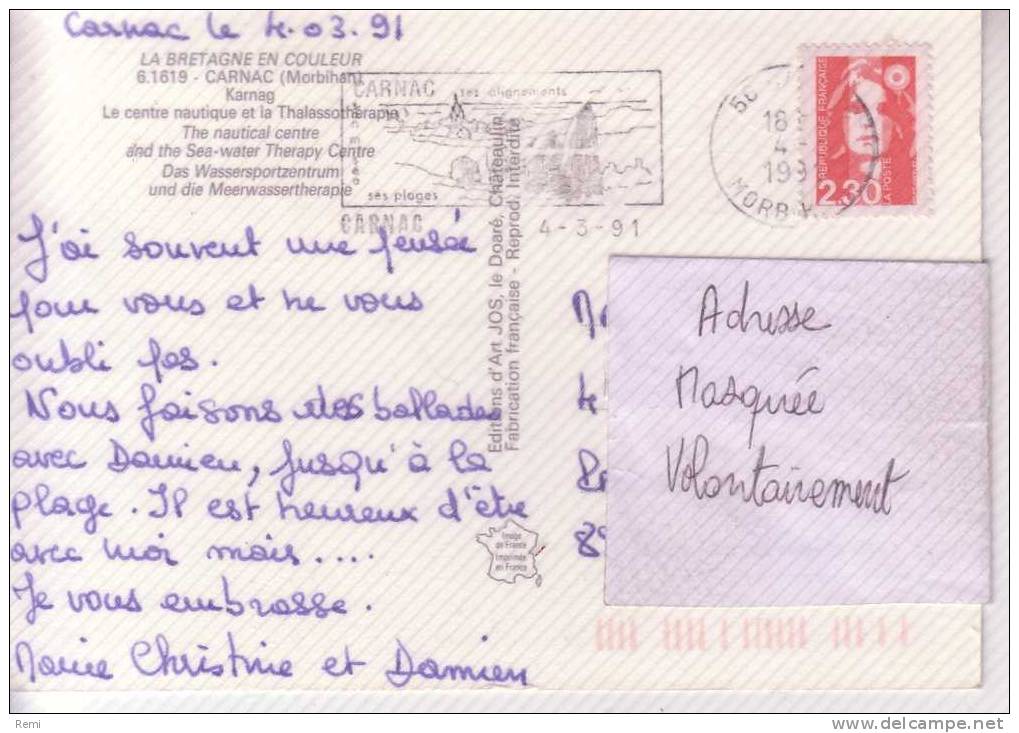 Carnac le 4.03.91
LA BRETAGNE EN COULEUR
6.1619 - CARNAC (Morbihan)
Karnag
Le centre nautique et la Thalassothérapie
The nautical centre
and the Sea-water Therapy Centre
Das Wassersportzentrum
und die Meerwassertherapie
CARNAC ses alignements
ses plages
CARNAC 4-3-91
18
4
199
MORBI
REPUBLIQUE FRANÇAISE
2,30
LA POSTE
J'ai souvent une pensée
pour vous et ne vous
oubli pas.
Nous faisons des ballades
avec Damien, jusqu'à la
plage. Il est heureux d'être
avec moi mais....
Je vous embrasse.
Marie Christine et Damien
Editions d'Art JOS, le Doaré, Châteaulin
Fabrication française - Reprod. Interdite
Image
de France
Imprimée
en France
Adresse
Masquée
Volontairement
Remi
http://www.delcampe.net